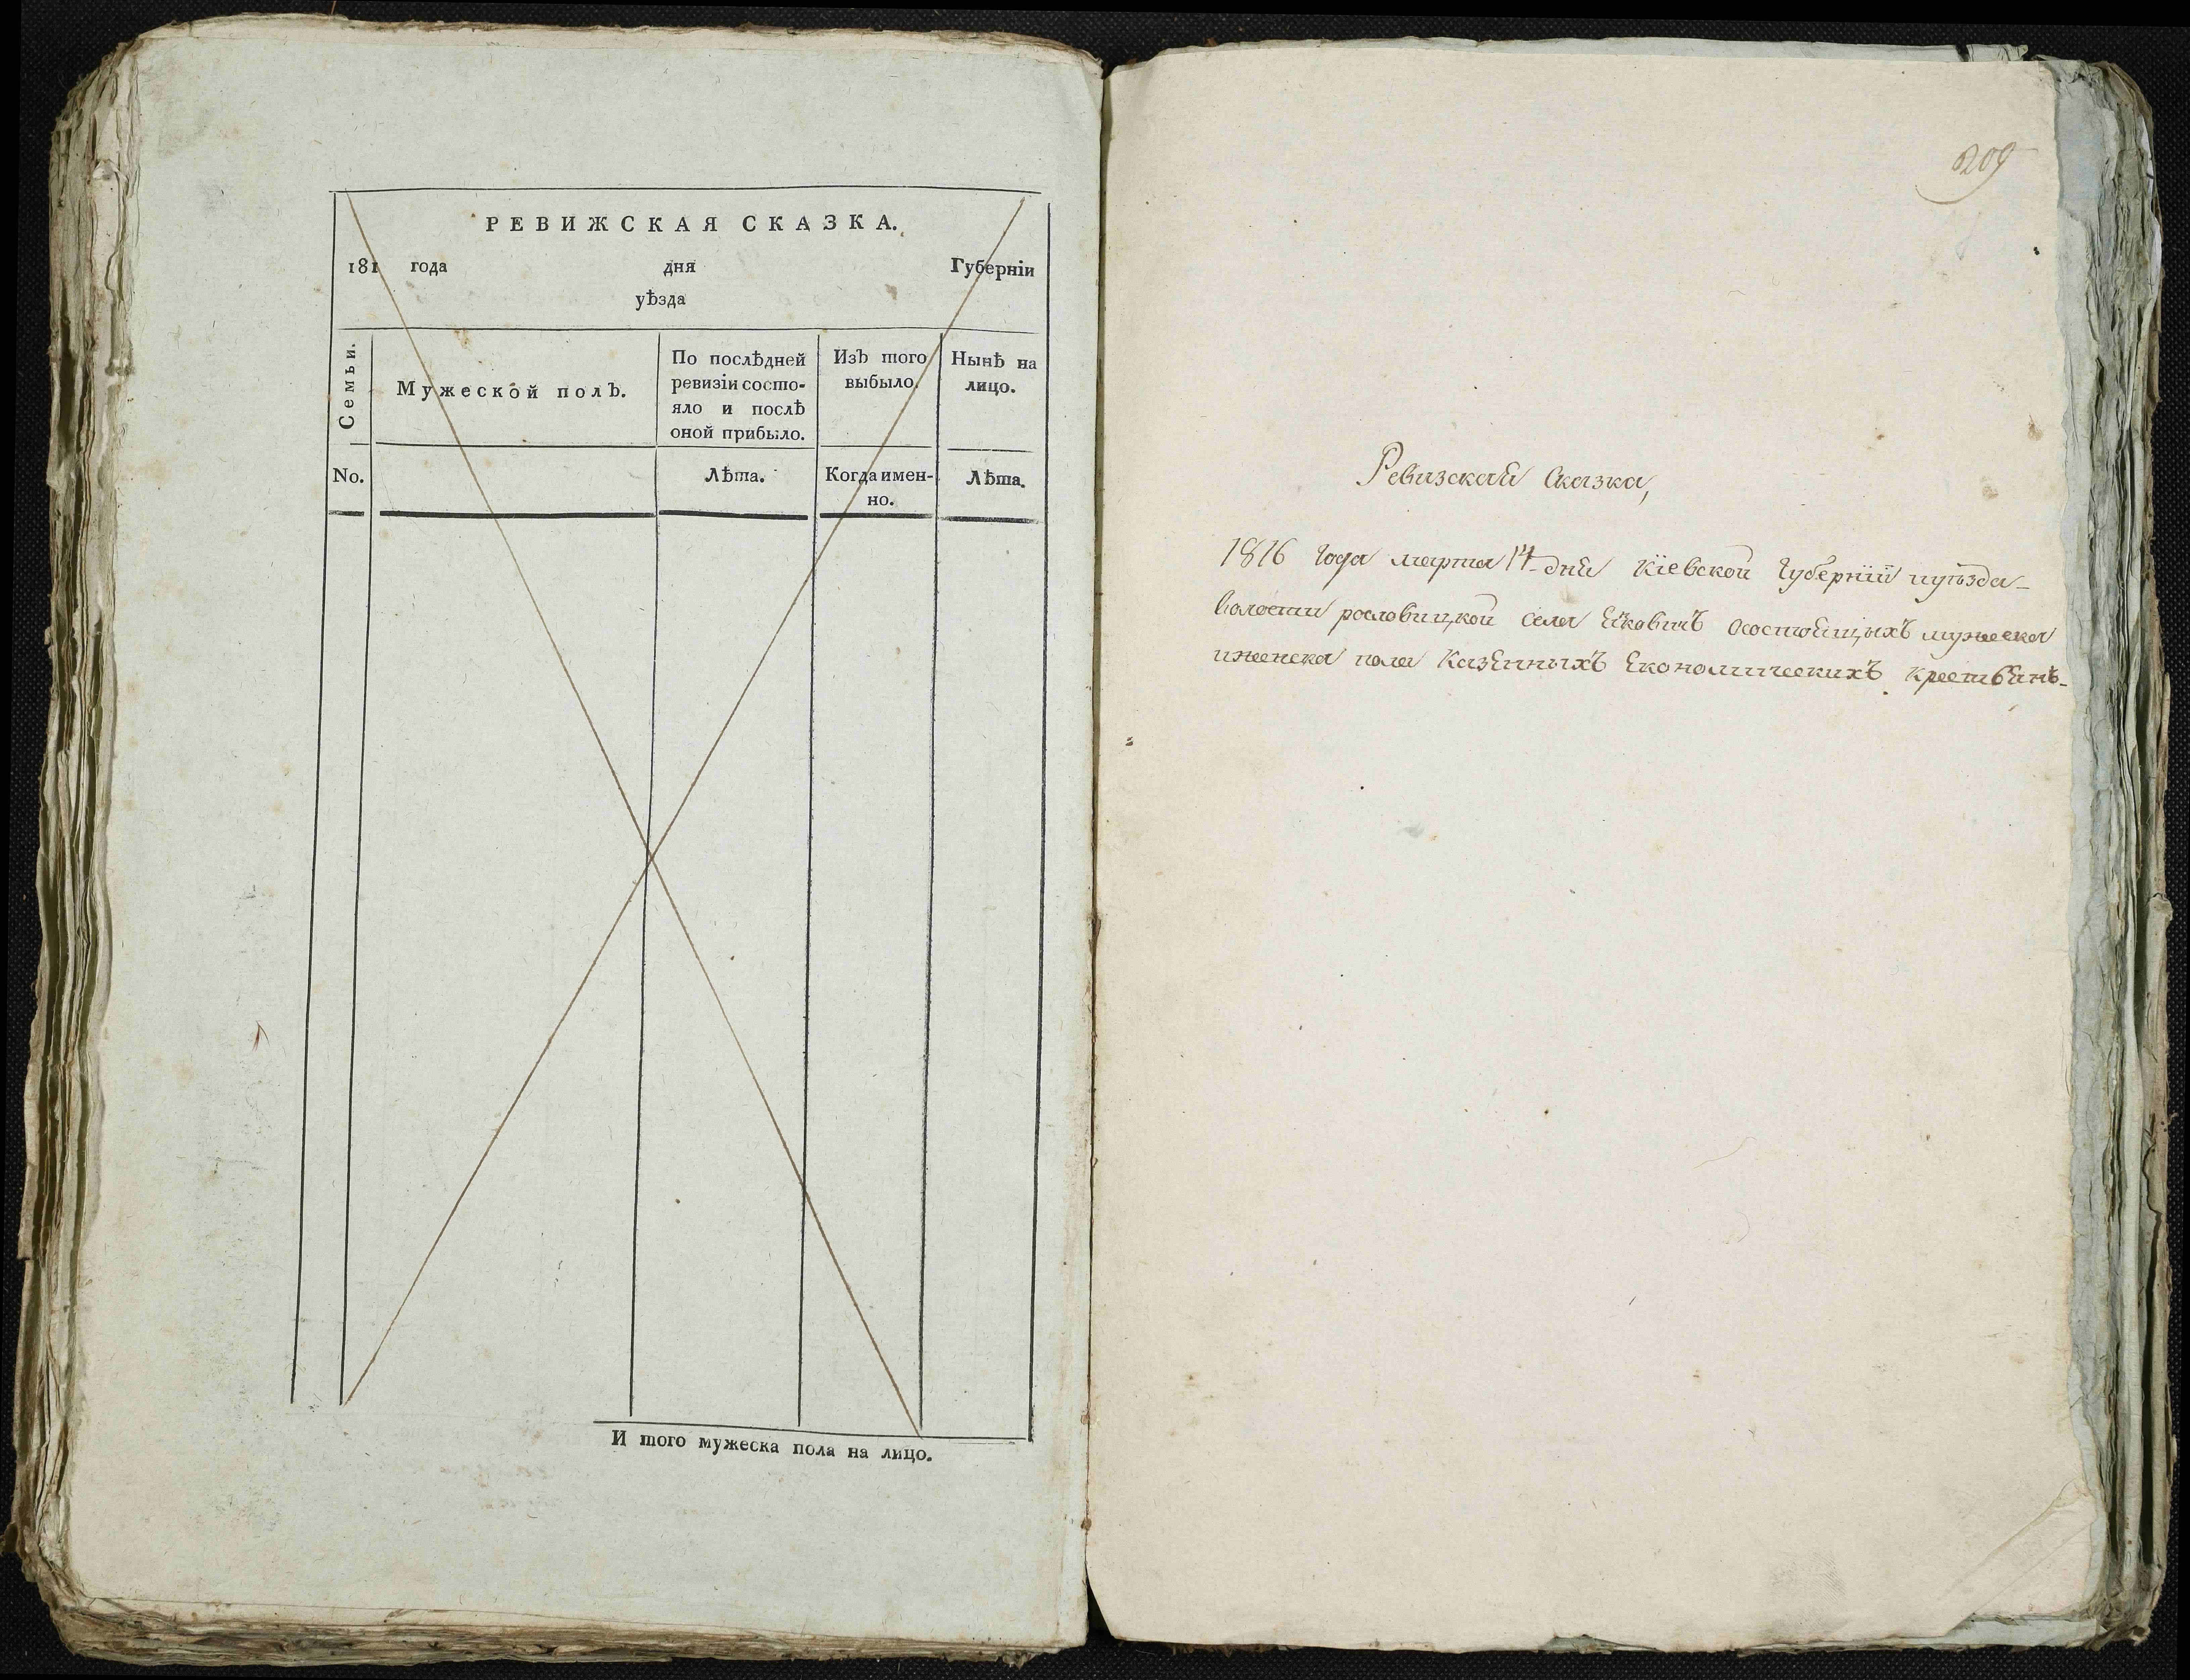 РЕВИЖСКАЯ СКАЗКА.
181 года дня Губерніи
уѣзда
Семьи.
Мужеской полъ.
По послѣдней
ревизіи состо-
яло и послѣ
оной прибыло.
Изъ того
выбыло.
Нынѣ на
лицо.
No.
Лѣта.
Когда имен-
но.
Лѣта.
И того мужеска пола на лицо.
209
Ревизская Сказка,
1816 года марта 14 дня Кіевской Губерніи иуѣзда
волости рославицкой села Яковичъ осостоящихъ мужеска
иженска пола Казенныхъ Економическихъ крестьянъ